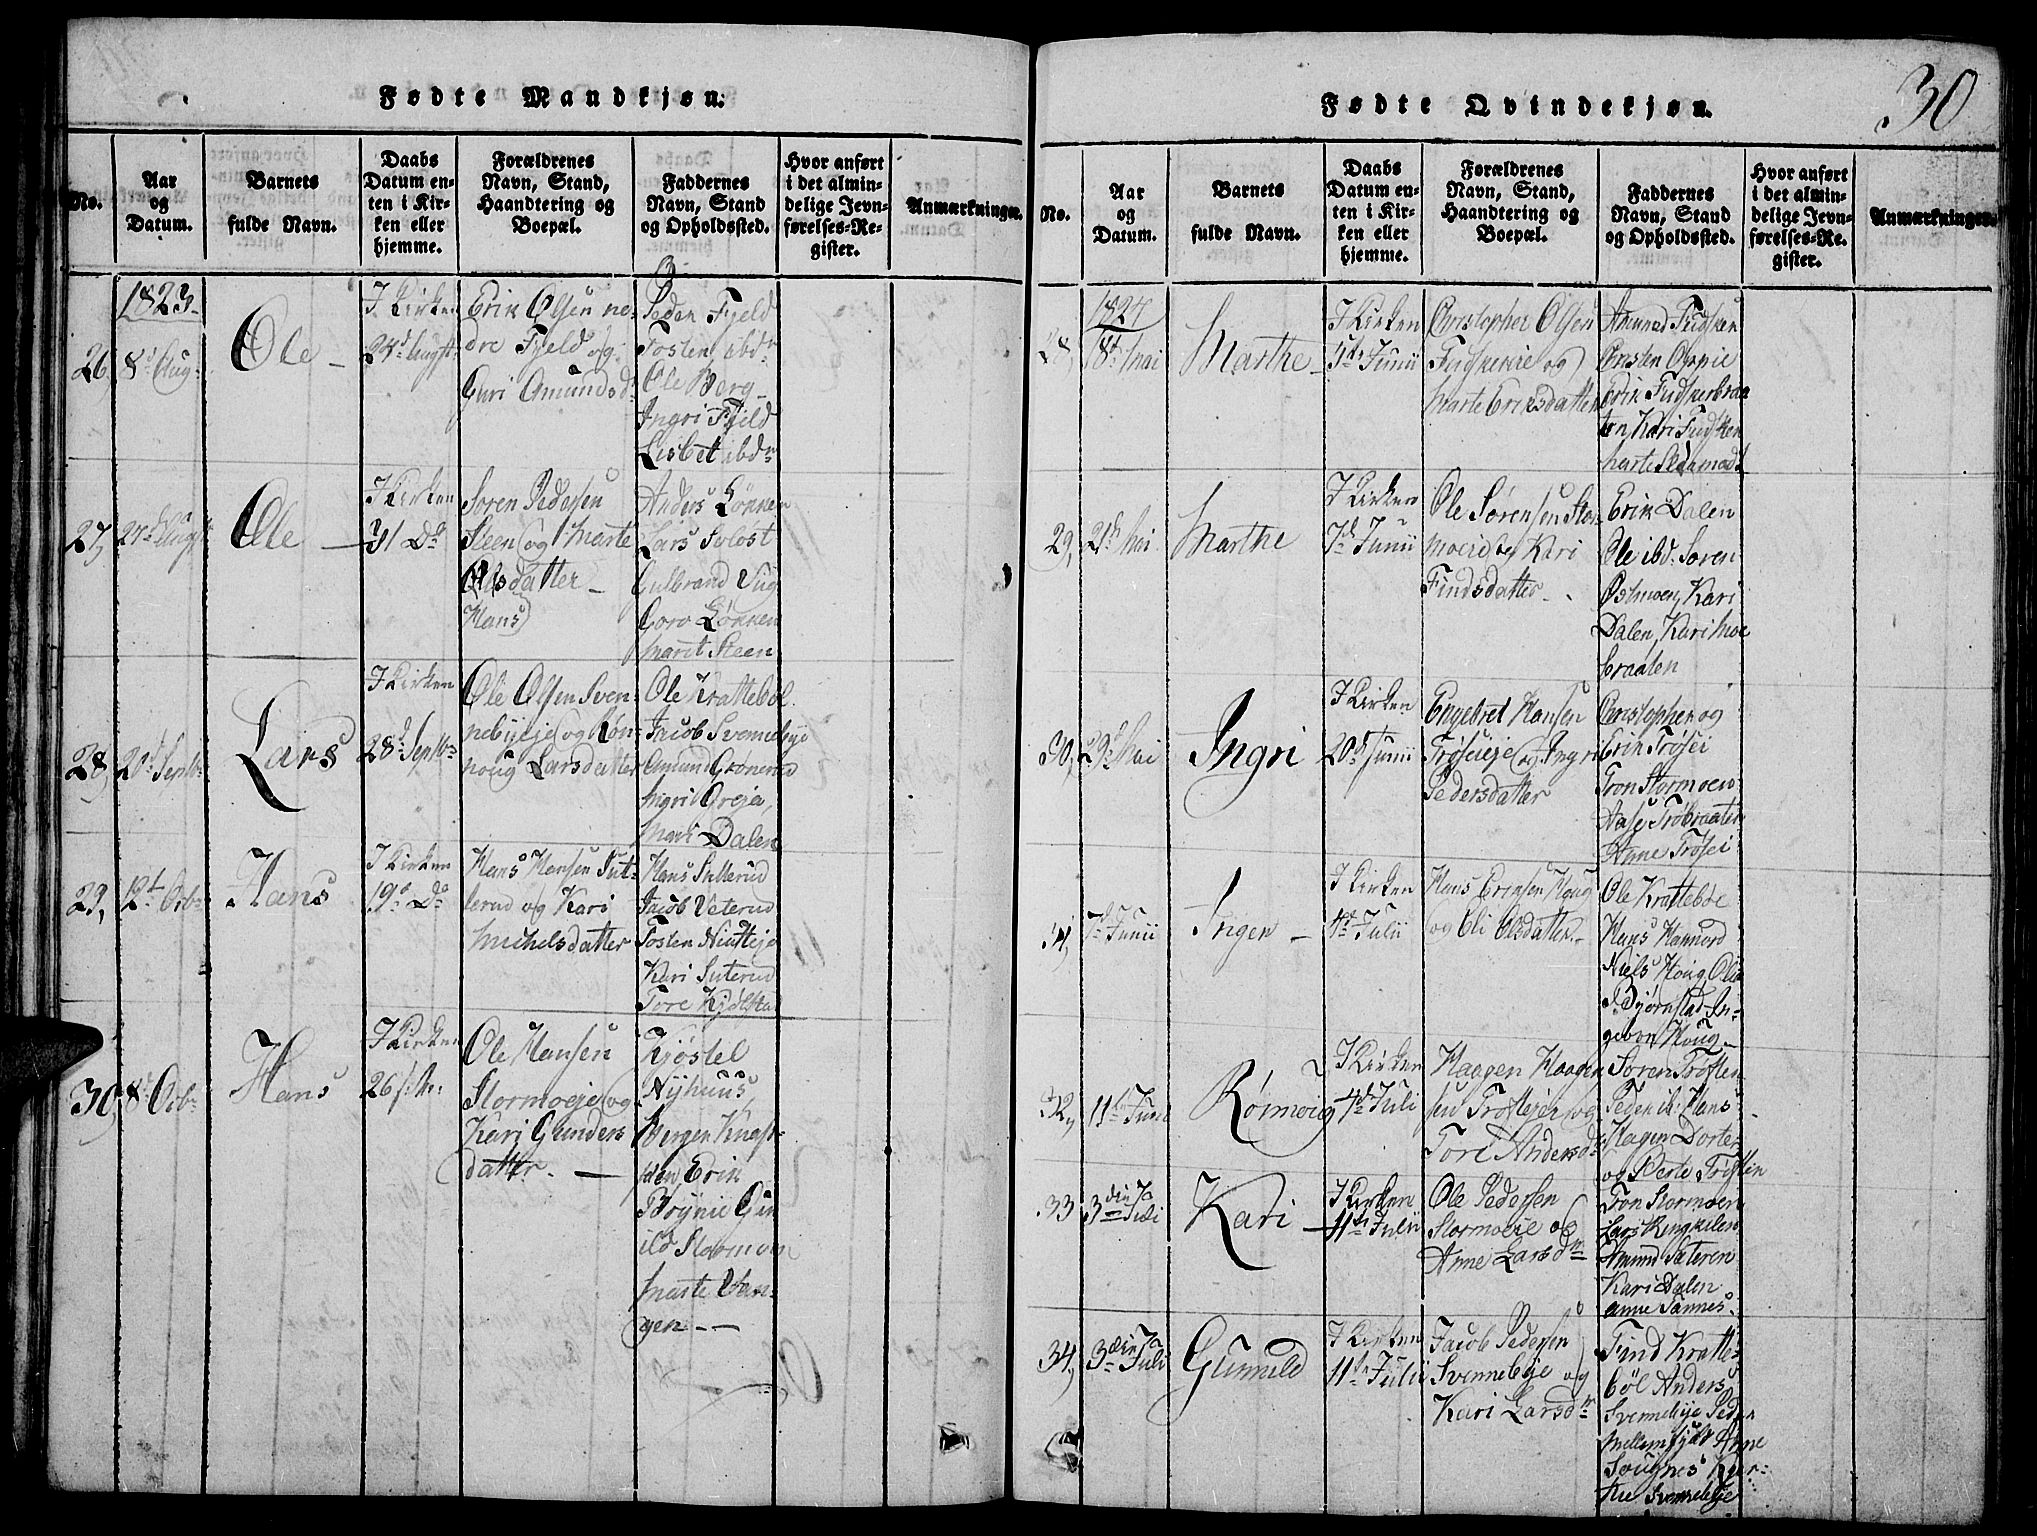 Fødte Mandkjøn.
No.
Aar
og
Datum.
Barnets
fulde Navn.
Daabs
Datum en-
ten i Kir-
ken eller
hjemme.
Forældrenes
Navn, Stand,
Haandtering og
Boepæl.
Faddernes
Navn, Stand
og Opholdssted.
Hvor anført
i det almin-
delige Jevn-
førelses-Re-
gister.
Anmærkninger.
1823
26
8d Aug:
Ole
I Kirken
24d Augst
Erik Olsen ne-
dre Fjeld og
Guri Amundsd:
Peder Fjeld
Tosten ibdm
Ole Berg
Ingri Fjeld
Lisbet ibdm
27
Ole
I Kirken
31 Do
Soren Pedersen
Steen og Marte
Olsdatter
Hans
Anders Løkken
Lars Solost
Gulbrand
Goro Løkken
Marit Steen
28
20d Septbr
Lars
I Kirken
28d Septbr
Ole Olsen Sven-
nebyeje og Røn-
noug Larsdatter
Ole Krattebøl
Jacob Svennebye
Amund
Ingri
Dalen
29,
12t Octbr
Hans
I Kirken
19d Do
Hans Hansen Sut-
terud og Kari
Michelsdatter
Hans Sutterud
Jacob Veterud
Tosten
Kari Suterud
Tore
30,
8d Octbr
Hans
I Kirken
26
Ole Hansen
Stormoeje og
Kari Gunders
datter.
Kjøstel
Nyhuus,
Bergen
Erik
Gun
ild Stormoen
Marte Van-
gen
Fødte Qvindekjøn.
30
No.
Aar
og
Datum.
Barnets
fulde Navn.
Daabs
Datum en-
ten i Kir-
ken eller
hjemme.
Forældrenes
Navn, Stand,
Haandtering og
Boepæl.
Faddernes
Navn, Stand
og Opholdssted.
Hvor anført
i det almin-
delige Jevn-
førelses-Re-
gister.
Anmærkninger.
1824
28,
18d Mai
Marthe
I Kirken
Junii
Christopher Olsen
og
Marte Eriksdatter
Amund
Christen Oppie
Erik
Kari
Marte
29,
21d Mai
Marthe
I Kirken
7d Junii
Ole Sørensen Stor
moeie og Kari
Findsdatter
Erik Dalen
Ole ibd: Soren
Østmoen, Kari
Dalen, Kari Moe
braaten
30,
29d Mai
Ingri
I Kirken
20d Junii
Engebret Hansen
Trøseieje og Ingri
Pedersdatter
Christopher og
Erik Trøsei
Tron Stormoen
Aase Trøbraaten
Anne Trøsei
31,
7d Junii
Ingen
I Kirken
4d Julii
Hans Erensen Houg
og Eli Olsdatter
Ole Krattebøe
Hans
Niels Houg, Ole
Bjørnstad, In-
gebor Houg
32,
11te Junii
Rønnoig
I Kirken
4d Juli
Haagen Haagen
sen og
Tore Andersd:
Soren Trøften
Peder ib: Hans
Hagen Dorte
og Berte Trøften
33
3die Juli
Kari
I Kirken
11te Julii
Ole Pedersen
Stormoeie og
Anne Larsdtr
Tron Stormoen
Lars Ringkilen
Amund Sæteren
Kari Dalen
Anne Sannes
34,
3die Juli
Gunnild
I Kirken
11te Julii
Jacob Pedersen
Svennebye og
Kari Larsdtr
Find Kratte-
bøl Anders
Svennebye Peder
Anne
Sougnes
Svennebye